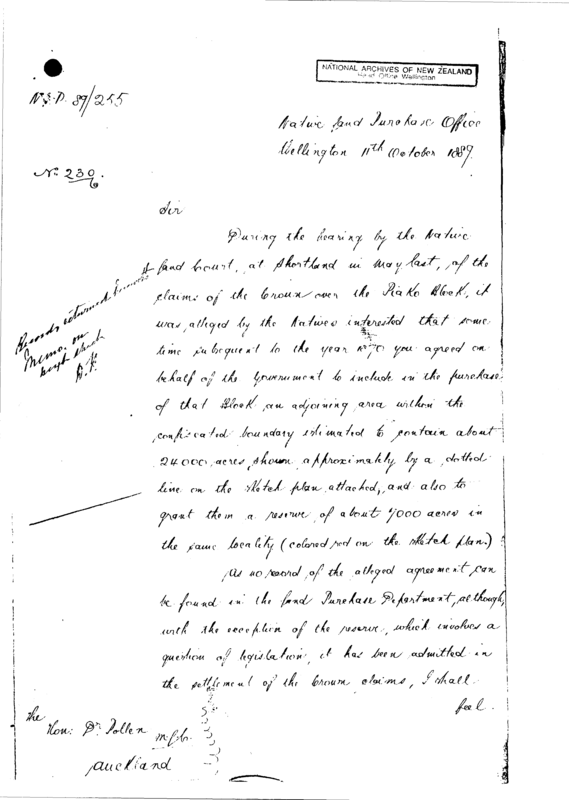 NATIONAL ARCHIVES OF NEW ZEALAND
Head Office Wellington
89/255
Native Land Purchase Office
Wellington 11th October 1889.
No. 230
Sir
During the hearing by the Native
Land Court, at Shortland in May last, of the
claims of the Crown over the Piako Block, it
was alleged by the Natives interested that some
time subsequent to the year you agreed on
behalf of the Government to include in the purchase
of that Block an adjoining area within the
confiscated boundary estimated to contain about
24000 acres, shown approximately by a dotted
line on the sketch plan attached, and also to
grant them a reserve of about 7000 acres in
the same locality (colored red on the sketch plan.)
As no record of the alleged agreement can
be found in the Land Purchase Department, although,
with the exception of the reserve, which involves a
question of legislation, it has been admitted in
the settlement of the Crown claims, I shall
feel
Records returned
Memo. on
The
Hon: Dr. Pollen
Auckland